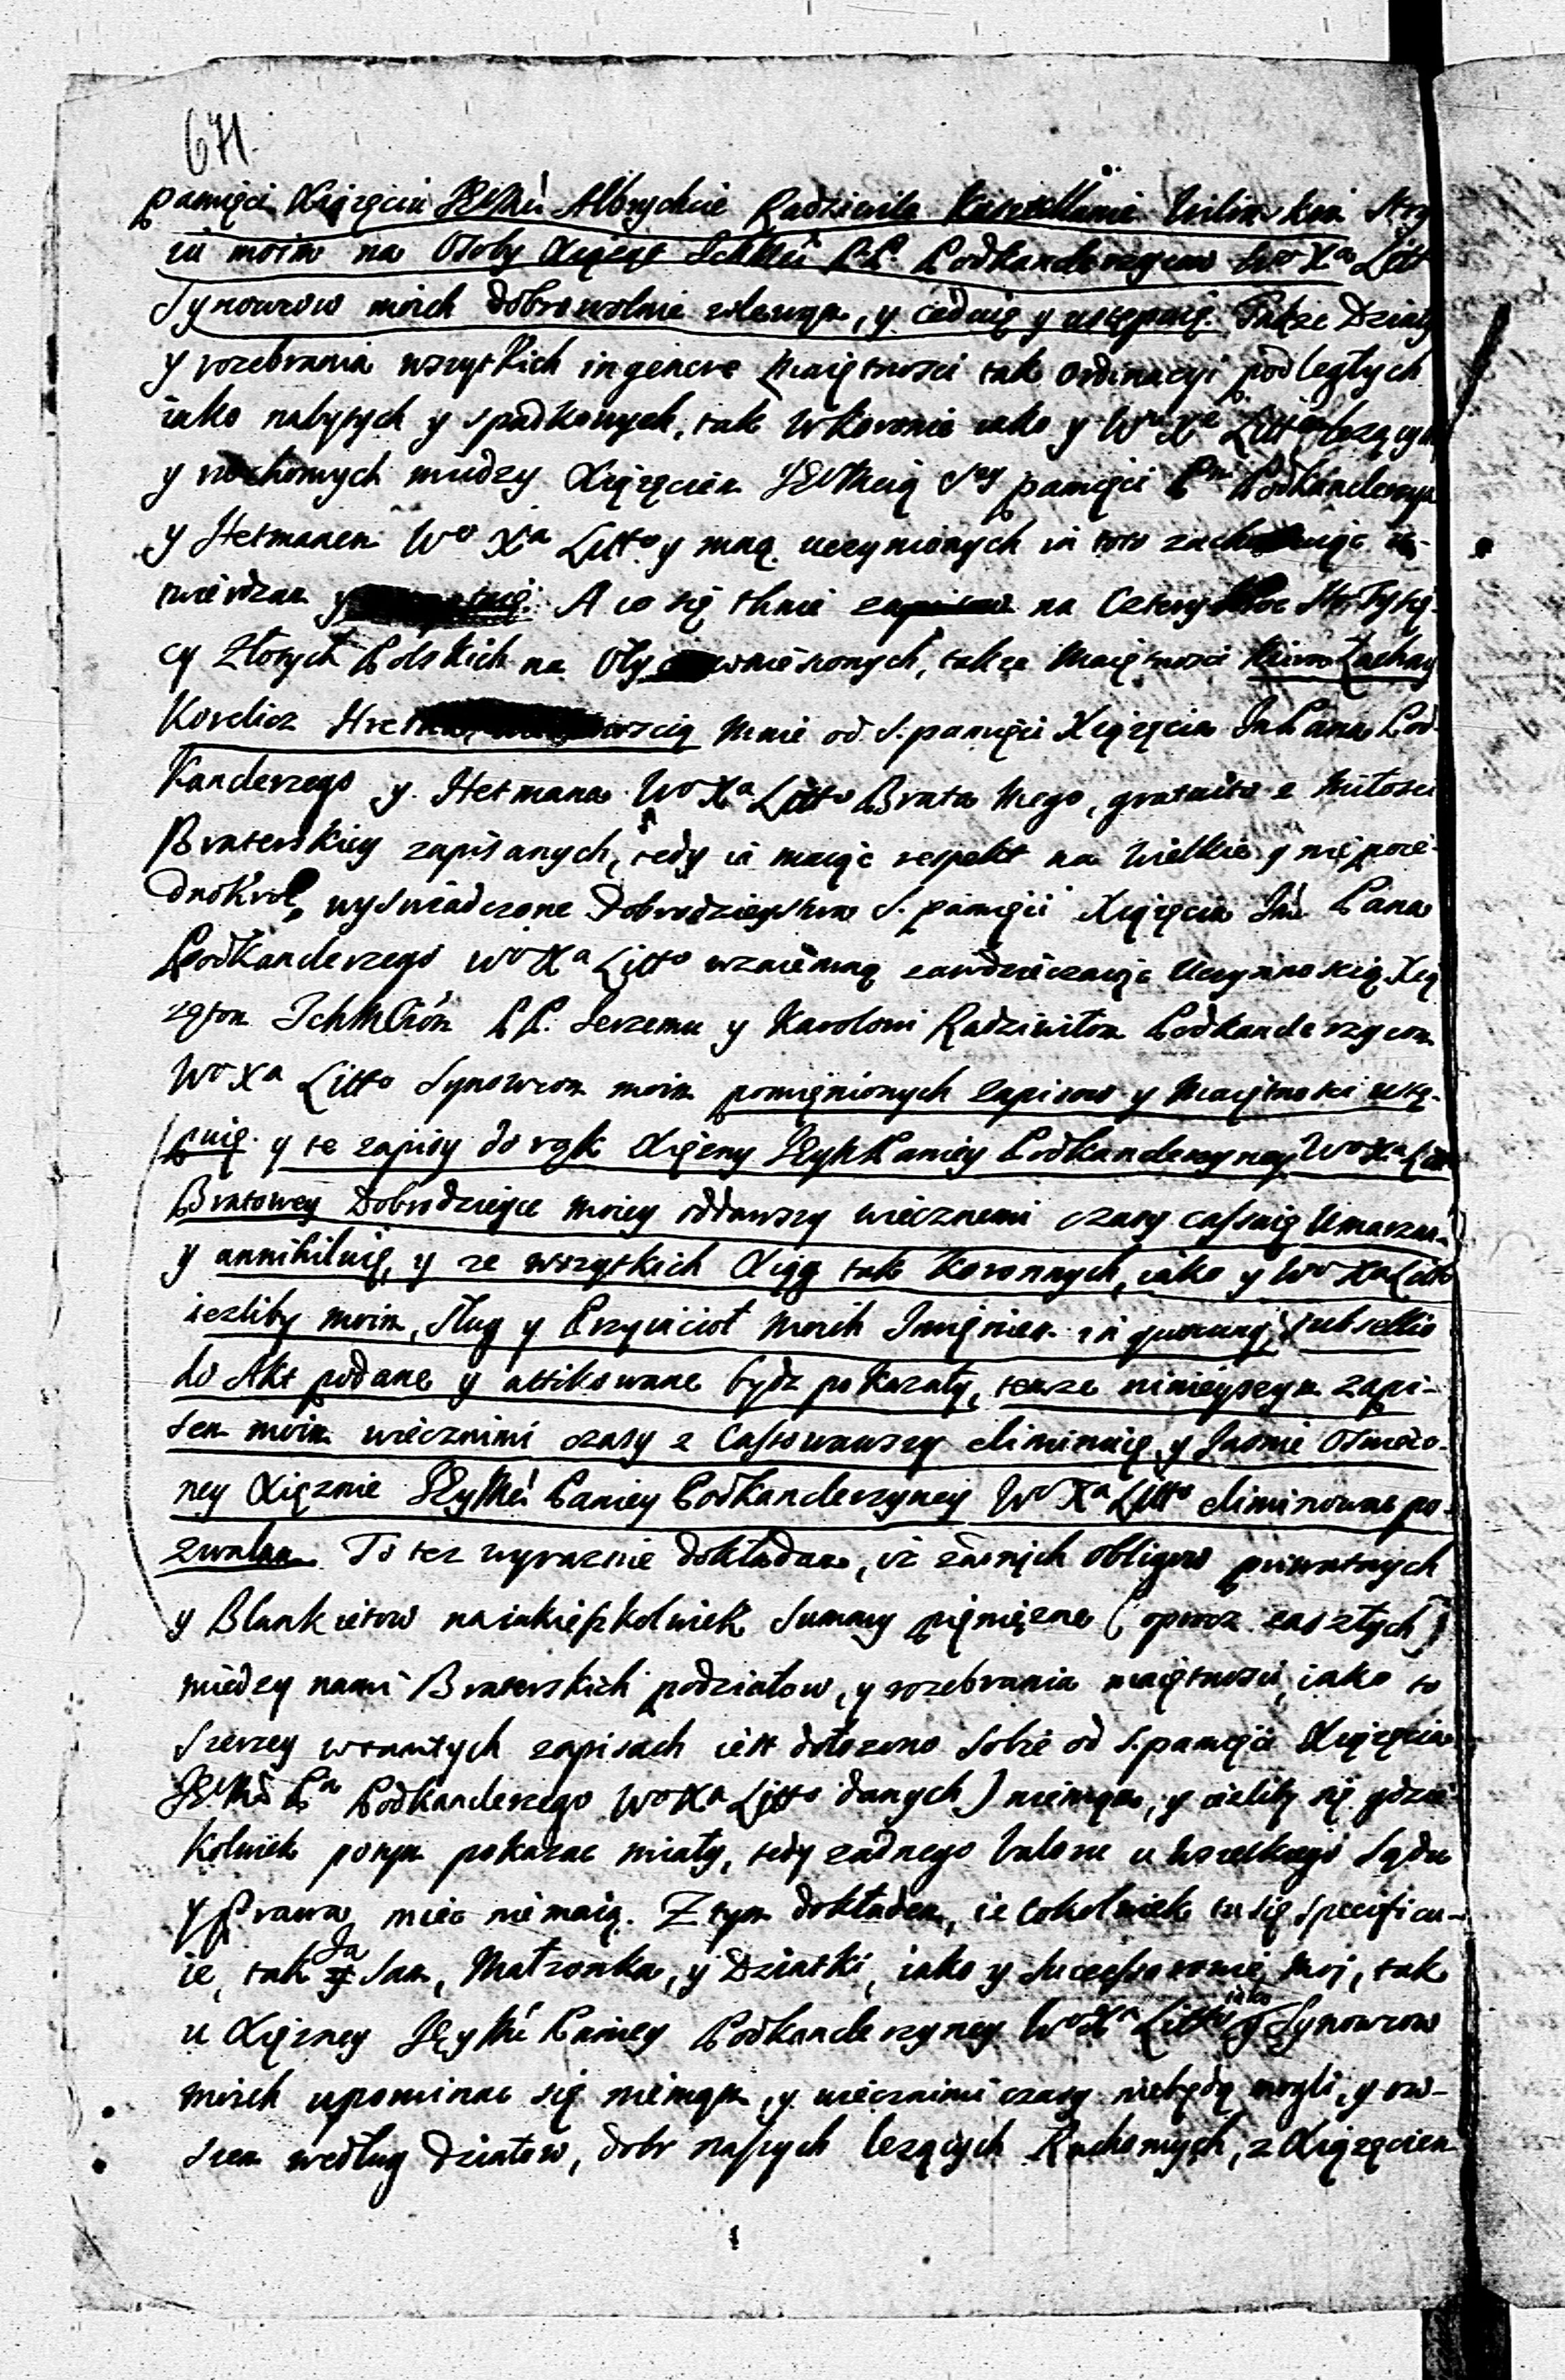 671.
pamięci Xiążęciu JEMći Albrychcie Radziwile Kasztellanie Wilenskim Stry
iu moim na Osoby Xiążąt Ichmću P.P. Podkanclerzycow Wo Xa Litt
Synowcow moich dobrowolnie wlewam, y ceduię y ustępuię. Także Działy
y rozebrania wszytkich in genere Maiętnosci tak Ordinacyi podległych
iako nabytych y spadkowych, tak w Koronie iako y Wm Xie Litt leżących
y ruchomych między Xiążęciem JEMcią S. pamięci Pm Podkanclerzym
y Hetmanem Wo Xa Litto y mną uczynionych in toto zachowuiąc u-
twierdzam y A co się tknie zapisow na Cztery kroc Sto Tysię
cy Złotych Polskich na Oły wniesionych, także Maiętnosci
Korelicz mnie od S. pamięci Xiążęcia Im Pana Pod-
kanclerzego y Hetmana Wo Xa Litto Brata Mego, gratuito z Miłosci
Braterskiey zapisanych, tedy ia maiąc respekt na Wielkie y nie poie-
dnokroć wyswiadczone Dobrodzieystwa S. pamięci Xiążęcia Im Pana
Podkanclerzego Wo Xa Litto wzaiemną zawdzięczaiąc Uczynnoscią Xią
żętom Ichmćiom P.P. Jerzemu y Karolowi Radziwiłom Podkanclerzycom
Wo Xa Litto Synowcom moim pomienionych zapisow y Maiętnosci ustę-
puię. y te zapisy do rąk Xiężny JEyM Paniey Podkanclerzyney Wo Xa Litt
Bratowey Dobrodzieyce moiey oddawszy wiecznemi czasy cassuię Umarzam
y annihiluię, y ze wszytkich Xiąg tak Koronnych, iako y Wo Xa Litto
iezliby moim, Sług y Przyiacioł moich Imieniem in quocunq subsellio
do Akt podane y attikowane bydz pokazały, temże ninieyszym zapi-
sem moim wiecznimi czasy z Cassowawszy eliminuię, y Jasnie Oswieco-
ney Xiężnie JEyMći Paniey Podkanclerzyney Wo Xa Litto eliminować po-
zwalam. To też wyraznie dokładam, iż żadnych obligow priwatnych
y Blankietow na iakieszkolwiek Summy pięniężne (oprocz zaszłych)
między nami Braterskich podziałow, y rozebrania maiętnosci, iako to
szerzey w tamtych zapisach iest dołożono sobie od S. pamięci Xiążęcia
JEMći Pa Podkanclerzego Wo Xa Litto danych) niemam, y ieliby się gdzie-
kolwiek potym pokazac miały, tedy żadnego Valoru u wszelkiego Sądu
y Prawa miec nie maią. Z tym dokładem, iż cokolwiek tu się specificu-
ie, tak Ja Sam, Małżonka, y Dziatki, iako y Successorowie moi, tak
u Xiężney JEyMći Paniey Podkanclerzyney Wo Xa Litto iako y Synowcow
moich upominac się niemam, y wiecznimi czasy niebędą mogli, y ow-
szem według Działow, dobr naszych leżących Ruchomych, z Xiążęciem